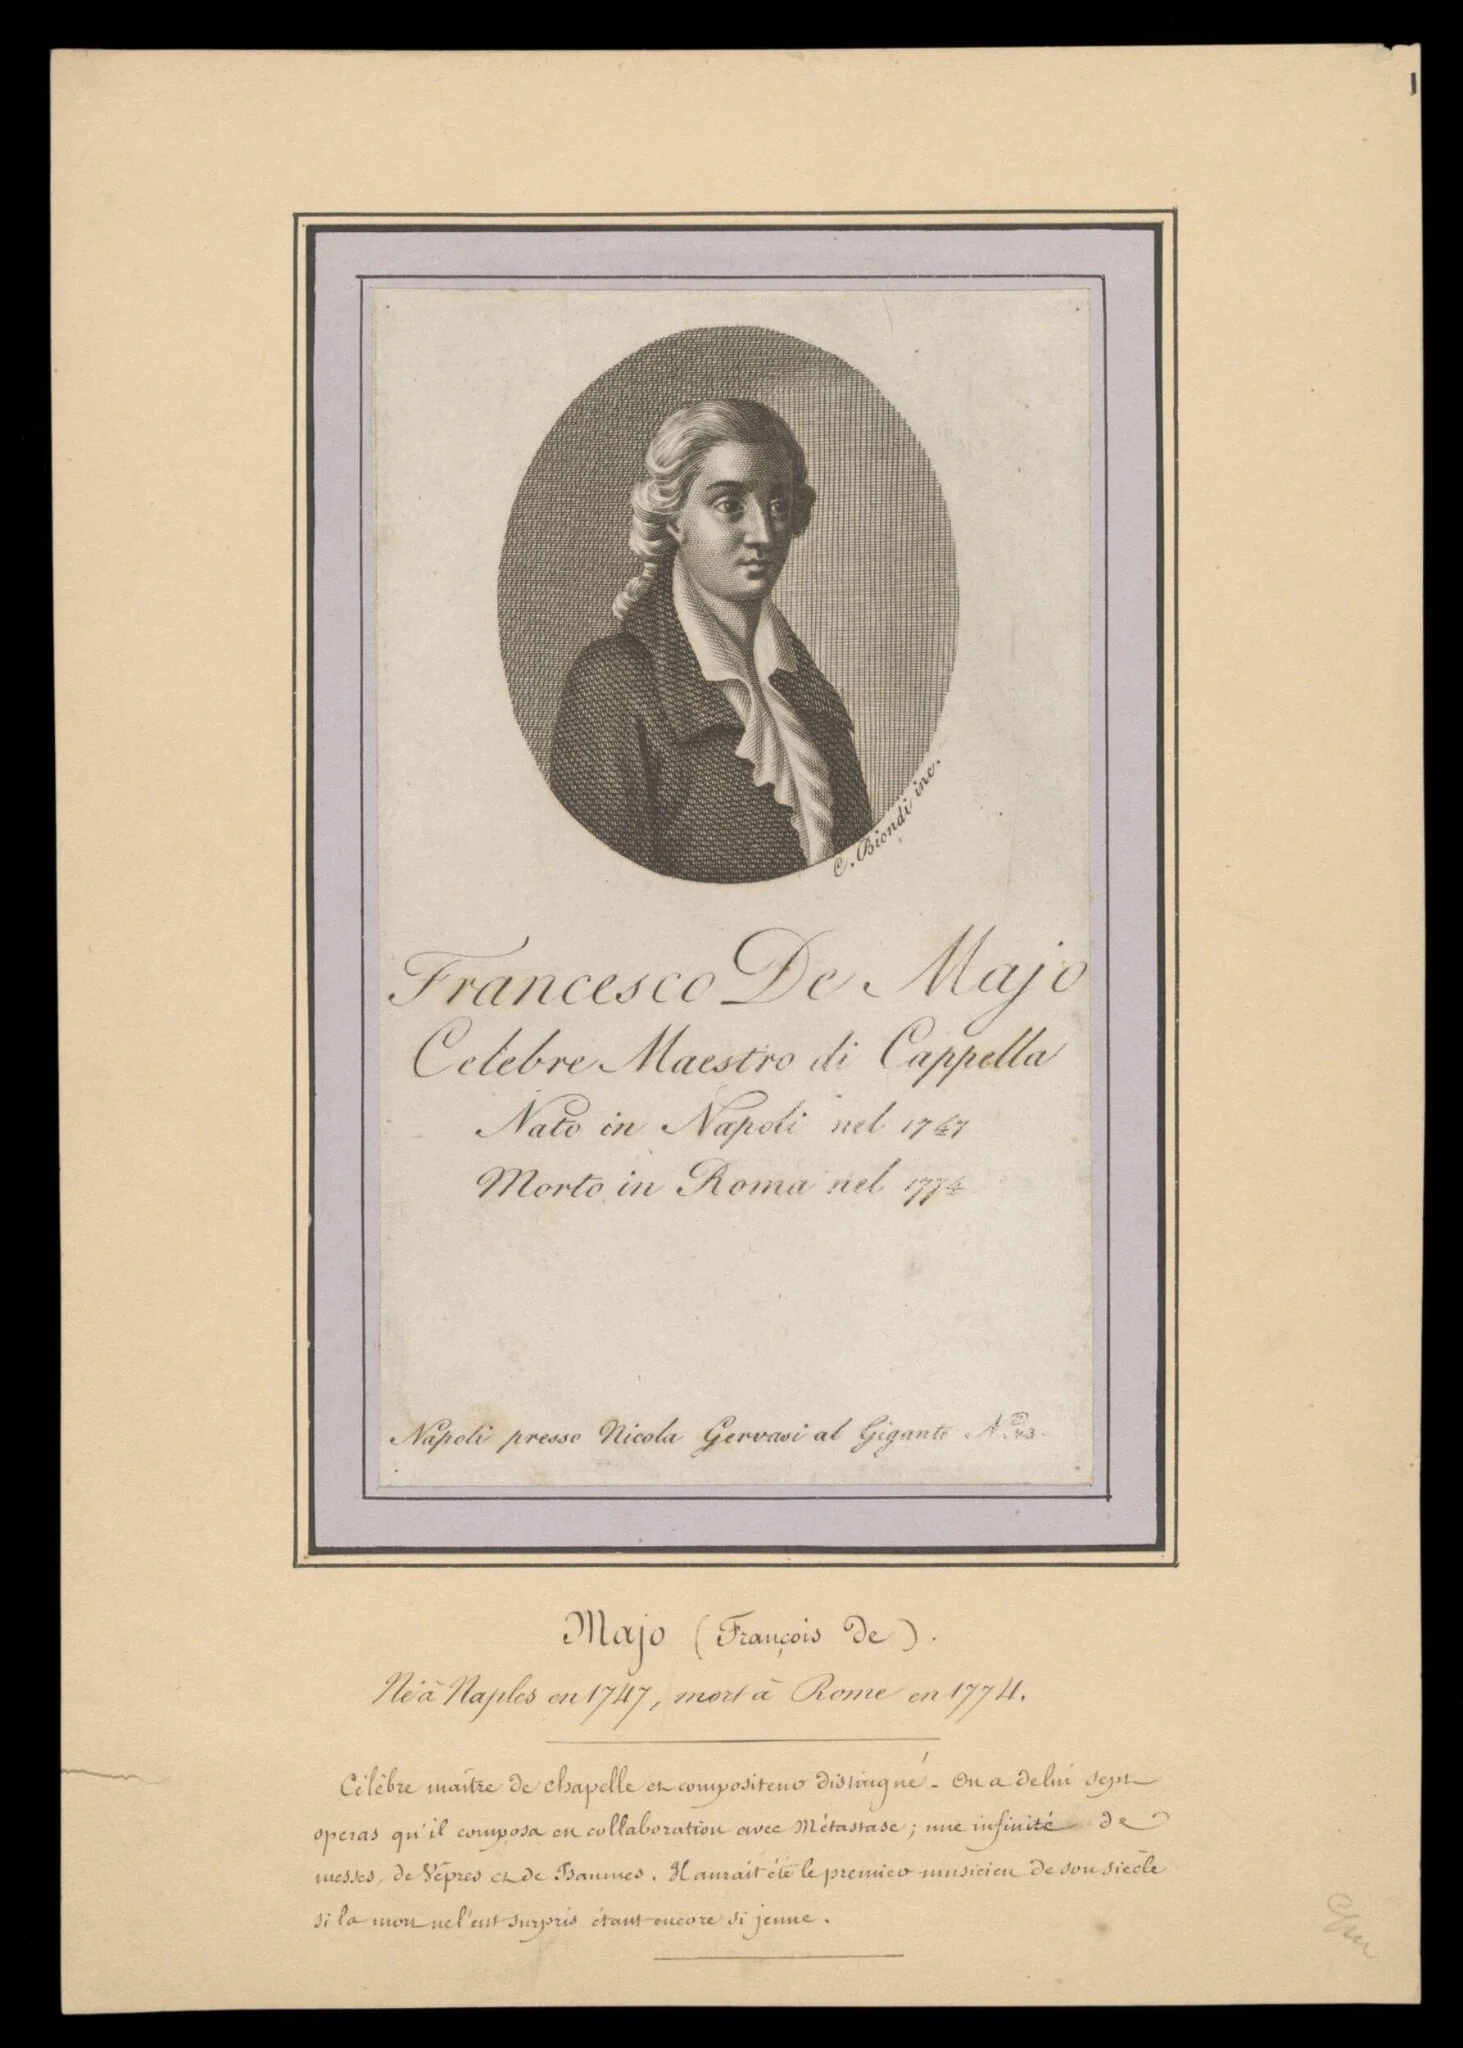 C. Biondi inc.
Francesco De Majo
Celebre Maestro di Cappella
Nato in Napoli nel 1747
Morto in Roma nel 1774
Napoli presso Nicola Gervasi al Gigante N.º 23.
Majo (François de).
Né à Naples en 1747, mort à Rome en 1774.
Célèbre maître de chapelle et compositeur distingué. On a de lui sept
operas qu'il composa en collaboration avec Métastase; une infinité de
messes, de Vêpres et de Psaumes. Il aurait été le premier musicien de son siècle
si la mort ne l'eut surpris étant encore si jeune.